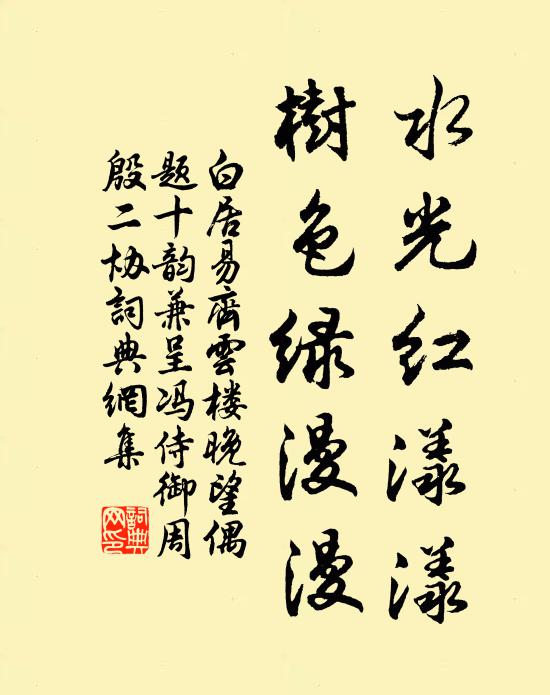 水光红漾漾
樹色绿漫漫
白居易齊雲楼晚望偶
题十韵兼呈冯侍御周
殷二协詞典網集
詞典网印